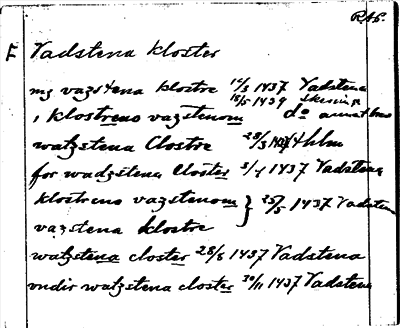 RAP.
F Vadstena kloster
mz vazstena klostre 12/3 1437 Vadstena
18/5 1439 Skeninge
, klostreno vazstenom do annat brev
watzstena Clostre 28/3 1437 Sthlm
for wadzstena Closter 3/4 1437 Vadstena
klostreno vazstenom } 25/5 1437 Vadstena
vazstena klostre
watzstena closter 28/6 1437 Vadstena
vndir watzstena closter 30/11 1437 Vadstena